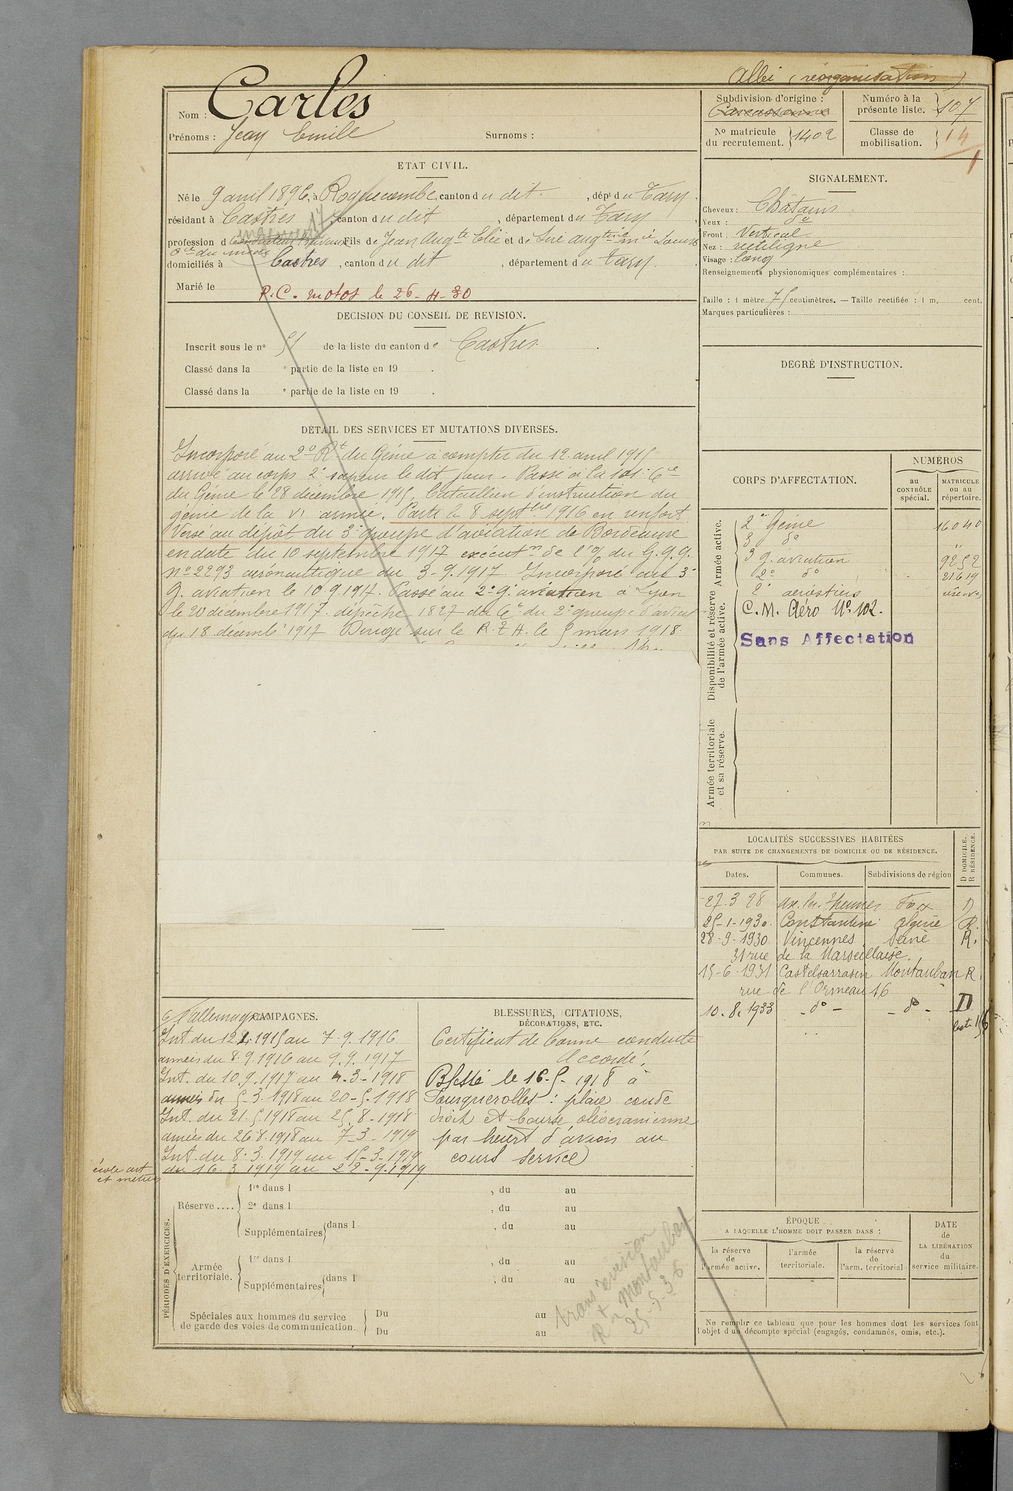 Albi (réorganisation)
Nom : Carles
Prénoms : Jean Emile Surnoms :
Subdivision d'origine : Carcassonne
Numéro à la présente liste. 107
No matricule du recrutement. 1402
Classe de mobilisation. 14
ETAT CIVIL.
Né le 9 avril 1896, à Roquecombe, canton du dit, dépt du Tarn
résidant à Castres, canton du dit, département du Tarn
profession d Fils de Jean Augte Elie et de
domiciliés à Castres, canton du dit, département du Tarn
Marié le
P.C. motos le 26-4-30
DECISION DU CONSEIL DE REVISION.
Inscrit sous le no 51 de la liste du canton de Castres.
Classé dans la e partie de la liste en 19 .
Classé dans la e partie de la liste en 19 .
DÉTAIL DES SERVICES ET MUTATIONS DIVERSES.
Incorporé au 2e Rt du Génie à compter du 12 avril 1915
arrivé au corps 2e sapeur le dit jour. Passé à la
du Génie le 28 décembre 1915. bataillon d'instruction du
génie de la VI armée. Parti le 8 septbre 1916 en renfort
Versé au dépôt du 3e groupe d'aviation de Bordeaux
en date du 10 septembre 1917 exécutn de l'o/ du G.Q.G.
no 2293 aéronautique du 3-9-1917. Incorporé au 3e
g. aviation le 10.9.1917. Passé au 2e g. aviation à Lyon
le 20 décembre 1917. dépêche 1827 du Ct du 2e groupe d'aviat
du 18 décemb. 1917 Dirigé sur le R.G.A. le 5 mars 1918
SIGNALEMENT.
Cheveux : Châtains
Yeux :
Front : Vertical
Nez : rectiligne
Visage : long
Renseignements physionomiques complémentaires :
Taille : 1 mètre 75 centimètres. — Taille rectifiée : 1 m, cent.
Marques particulières :
DEGRÉ D'INSTRUCTION.
CORPS D'AFFECTATION.
NUMÉROS
au CONTRÔLE spécial.
MATRICULE ou au répertoire.
Armée active.
2e Génie 16040
3 do
3 g. aviation 9252
2e do 21619
2e aérostiers
Disponibilité et réserve de l'armée active.
C.M. Aéro No 102.
Sans Affectation
Armée territoriale et sa réserve.
LOCALITÉS SUCCESSIVES HABITÉES
PAR SUITE DE CHANGEMENTS DE DOMICILE OU DE RÉSIDENCE.
Dates. Communes. Subdivisions de région D DOMICILE. R RÉSIDENCE.
27.3 28 Ax les Thermes Foix D
25-1-1930. Constantine Algérie R.
28-9-1930 Vincennes. Seine R.
31 rue de la Marseillaise.
15-6-1931 Castelsarrasin Montauban R
rue de l'Ormeau 16
10.8.1933 - do - - do - D
CAMPAGNES.
C. l'allemagne
Int du 12.4.1915 au 7-9.1916
armées du 8.9.1916 au 9.9.1917
Int. du 10.9.1917 au 4-3-1918
armées du 5.3.1918 au 20-5-1918
Int. du 21.5.1918 au 25.8-1918
armées du 26.8.1918 au 7-3-1919
Int. du 8.3.1919 au 15-3-1919
du 16 3 1919 au 22-9.1919
école art et métiers
BLESSURES, CITATIONS, DÉCORATIONS, ETC.
Certificat de bonne conduite
Accordé.
Blessé le 16-5-1918 à
Fouquerolles : plaie coude
droit et bourse olécranienne
par heurt d'avion au
cours service
PÉRIODES D'EXERCICES.
Réserve .... 1re dans l , du au
2e dans l , du au
Supplémentaires dans l , du au
Armée territoriale. 1re dans l , du au
Supplémentaires dans l , du au
Spéciales aux hommes du service de garde des voies de communication. Du au
Du au
Rt Montauban
25.5.36
ÉPOQUE
A LAQUELLE L'HOMME DOIT PASSER DANS :
la réserve de l'armée active.
l'armée territoriale.
la réserve de l'arm. territorial.
DATE de LA LIBÉRATION du service militaire.
Ne remplir ce tableau que pour les hommes dont les services font
l'objet d'un décompte spécial (engagés, condamnés, omis, etc.).